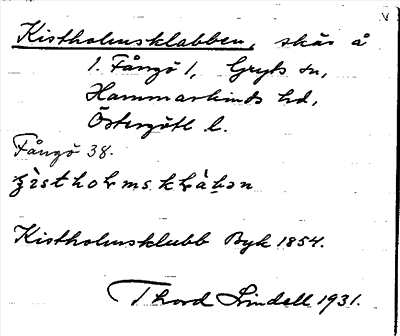 Kistholmsklabben, skär å
1. Fångö 1, Gryts sn,
Hammarkinds hd,
Östergötl l.
Fångö 38.
Kistholmsklubb Byk 1854.
Thord Lindell 1931.